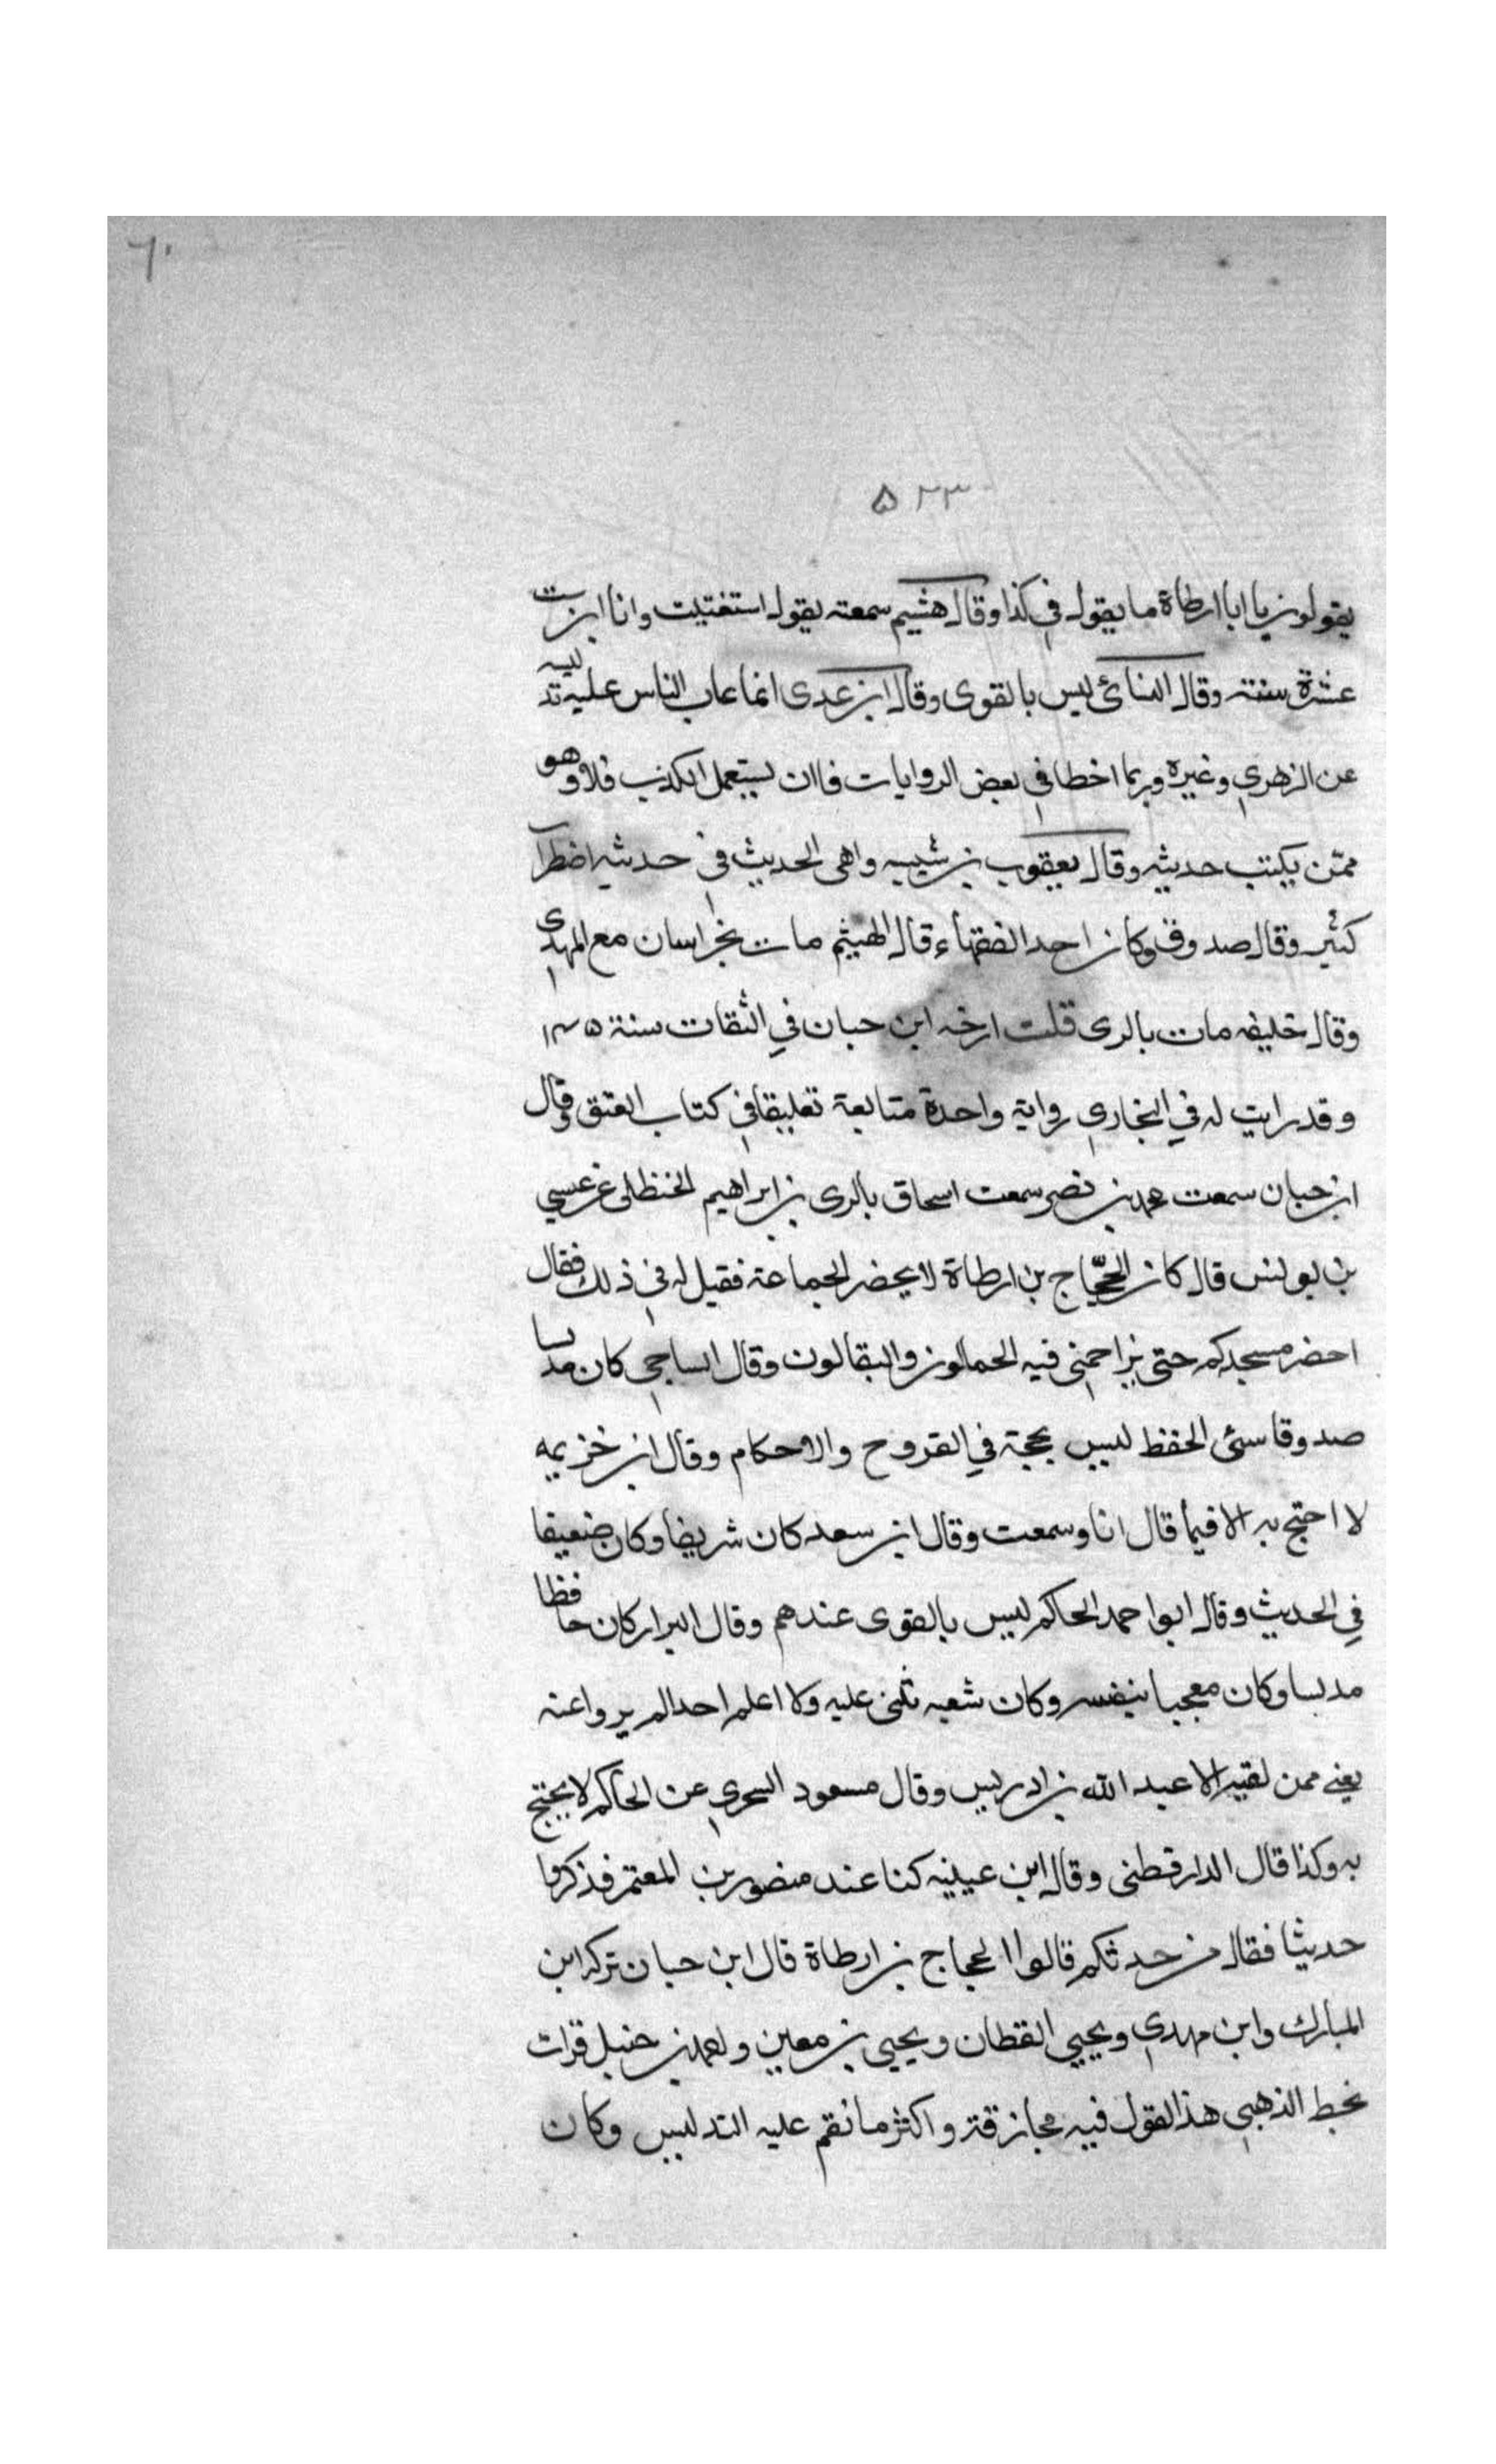 ٦٠
٥٢٣
يقولون يا ابا ارطاة ما يقول في كذا وقال هشيم سمعته يقول استفتيت وانا ابن ست
عشرة سنة وقال النسائ ليس بالقوى وقال ابن عدى انما عاب الناس عليه تدليسه
عن الزهري وغيره وربما اخطا في بعض الروايات فاان يستعمل الكذب فلا وهو
ممّن يكتب حديثه وقال يعقوب بن شيبه واهى الحديث في حديثه اضطراب
كثير وقال صدوق وكان احد الفقهاء قال الهيثم مات بخراسان مع المهدي
وقال خليفه مات بالرى قلت ارخه ابن حبان في الثقات سنة ١٤٥
وقد رايت له في البخاري رواية واحدة متابعة تعليقا في كتاب العتق وقال
ابن حبان سمعت محمد بن نصر سمعت اسحاق بالرى بن ابراهيم الحنظلى عن عيسي
بن يونس قال كان الحجّاج بن ارطاة لا يحضر الجماعة فقيل له في ذلك فقال
احضر مسجدكم حتى يزاحمني فيه الحمالون والبقالون وقال الساجي كان مدلسا
صدوقا سئ الحفظ ليس بحجة في الفروح والاحكام وقال ابن خزيمه
لا احتج به الا فيما قال انا وسمعت وقال ابن سعد كان شريفا وكان ضعيفا
في الحديث وقال ابوا حمد الحاكم ليس بالقوى عندهم وقال البزار كان حافظا
مدلسا وكان معجبا بنفسه وكان شعبه يثني عليه ولا اعلم احدا لم يروا عنه
يعني ممن لقيه الا عبد الله بن ادريس وقال مسعود السجزي عن الحاكم لا يحتج
به وكذا قال الدارقطنى وقال ابن عيينه كنا عند منصور بن المعتمر فذكروا
حديثا فقال من حدثكم قالوا الحجاج بن ارطاة قال ابن حبان تركه ابن
المبارك وابن مهدي ويحيي القطان ويحيى بن معين واحمد بن حنبل قرات
بخط الذهبي هذا القول فيه مجازفة واكثر ما نقم عليه التدليس وكان